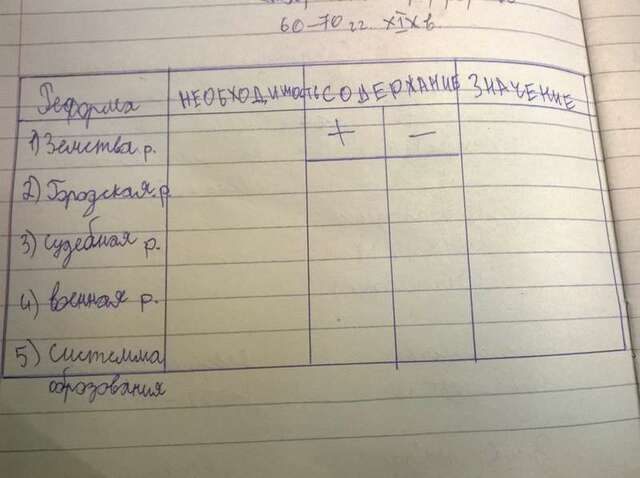 60-70 гг. XIX в.
Реформа
НЕОБХОДИМОСТЬ
СОДЕРЖАНИЕ
ЗНАЧЕНИЕ
+
-
1) Земства р.
2) Городская р.
3) Судебная р.
4) военная р.
5) Система
образования